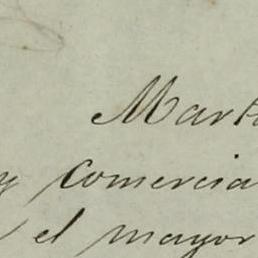 Mart
y comercia
el mayor